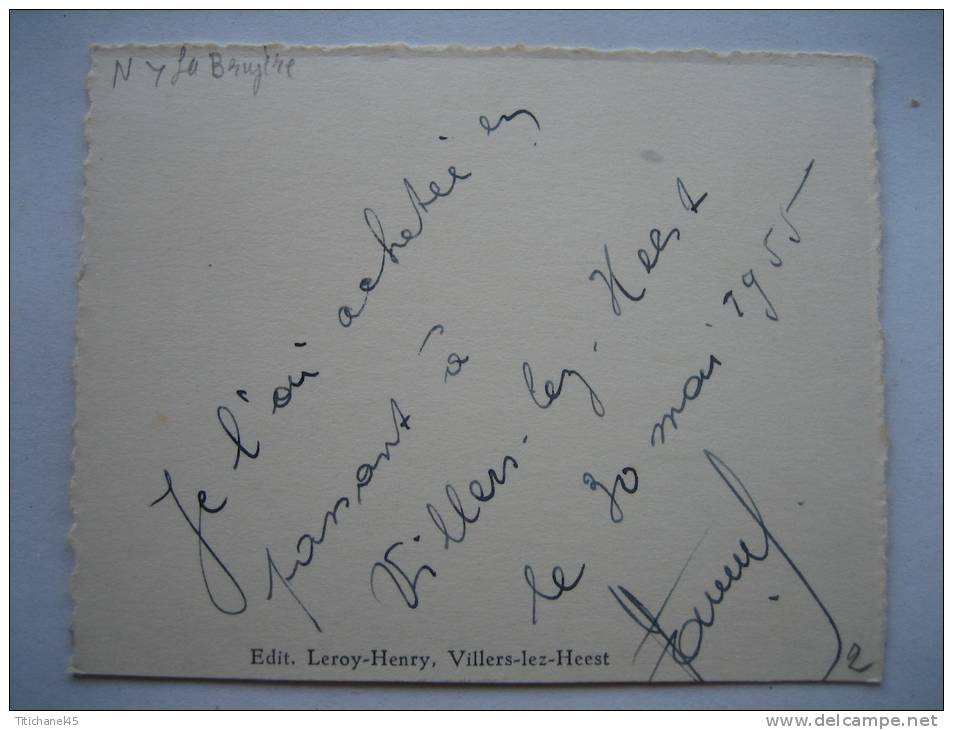 N 4 La Bruyère
Je l'ai achetée en
passant à
Villers-lez-Heest
le 30 mai 1955
Edit. Leroy-Henry, Villers-lez-Heest
2
Ttichane45
www.delcampe.net